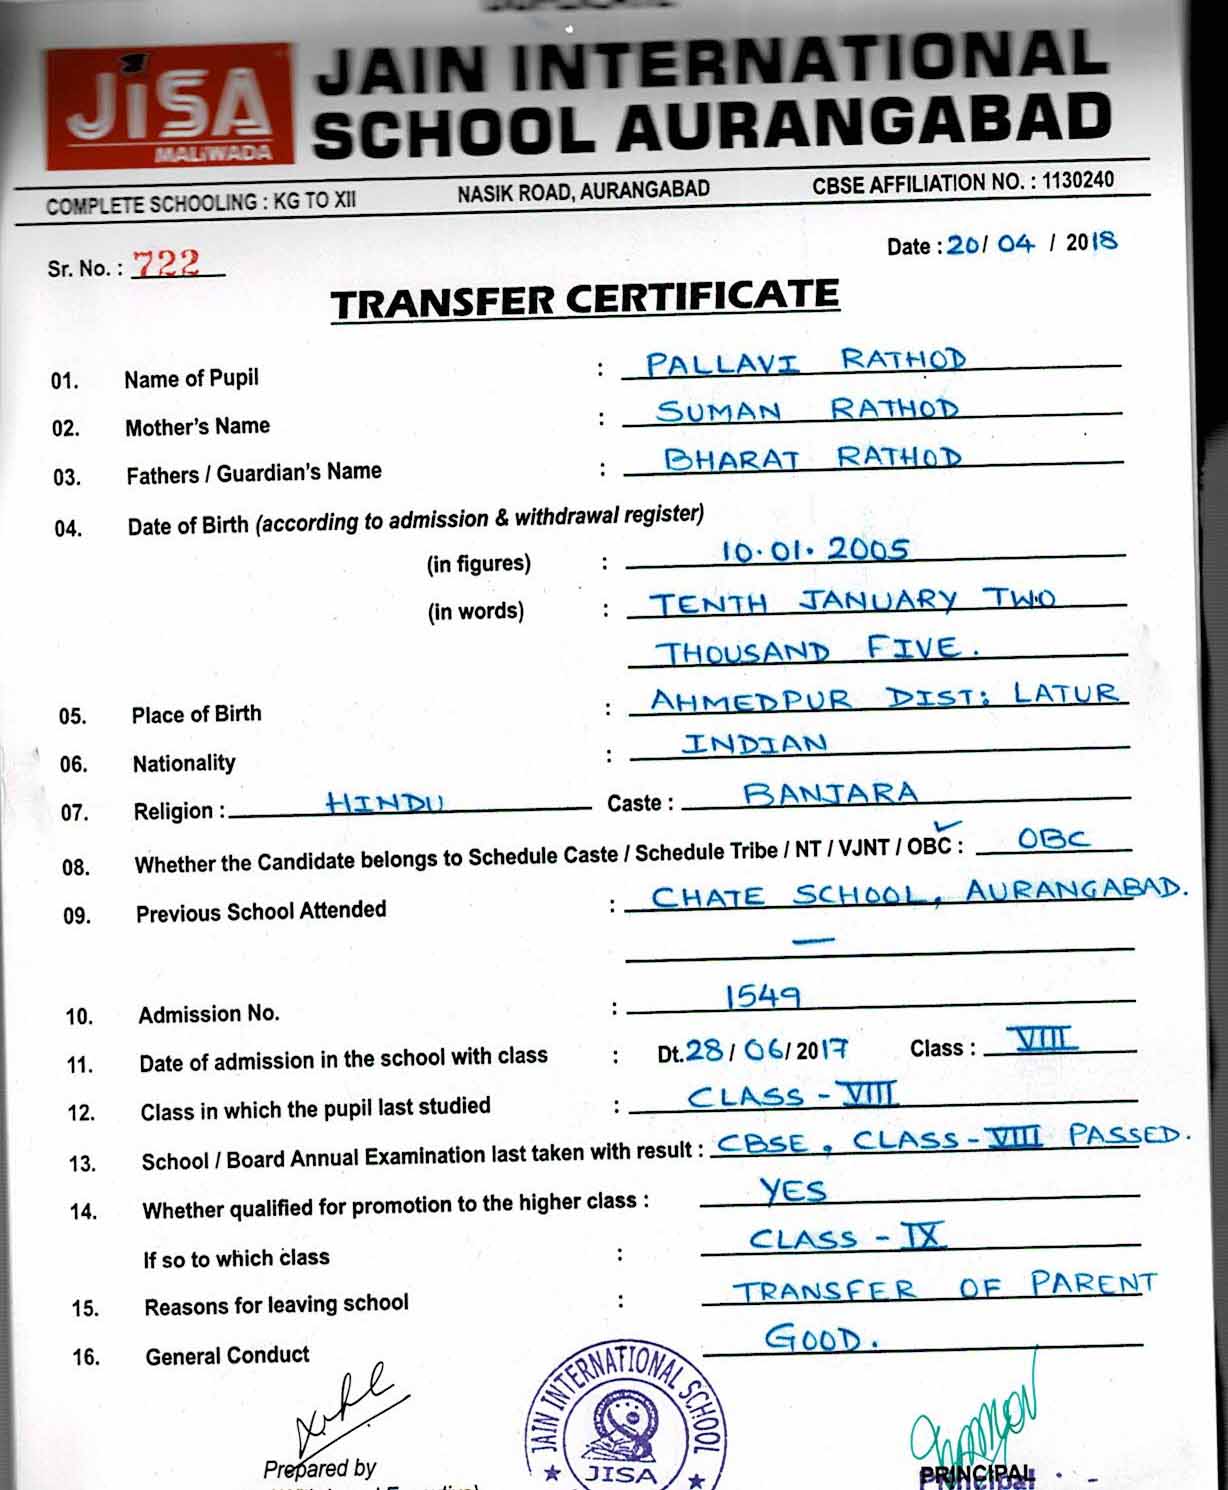 JiSA
MALiWADA
JAIN INTERNATIONAL
SCHOOL AURANGABAD
COMPLETE SCHOOLING : KG TO XII NASIK ROAD, AURANGABAD CBSE AFFILIATION NO. : 1130240
Sr. No. : 722 Date : 20/ 04 / 2018
TRANSFER CERTIFICATE
01. Name of Pupil : PALLAVI RATHOD
02. Mother's Name : SUMAN RATHOD
03. Fathers / Guardian's Name : BHARAT RATHOD
04. Date of Birth (according to admission & withdrawal register)
(in figures) : 10.01.2005
(in words) : TENTH JANUARY TWO
THOUSAND FIVE.
05. Place of Birth : AHMEDPUR DIST: LATUR
06. Nationality : INDIAN
07. Religion : HINDU Caste : BANJARA
08. Whether the Candidate belongs to Schedule Caste / Schedule Tribe / NT / VJNT / OBC : OBC
09. Previous School Attended : CHATE SCHOOL, AURANGABAD.
—
10. Admission No. : 1549
11. Date of admission in the school with class : Dt.28/ 06/ 2017 Class : VIII
12. Class in which the pupil last studied : CLASS - VIII
13. School / Board Annual Examination last taken with result : CBSE, CLASS-VIII PASSED.
14. Whether qualified for promotion to the higher class : YES
If so to which class : CLASS - IX
15. Reasons for leaving school : TRANSFER OF PARENT
16. General Conduct GOOD.
JAIN INTERNATIONAL SCHOOL
JISA
Prepared by
PRINCIPAL
Principal